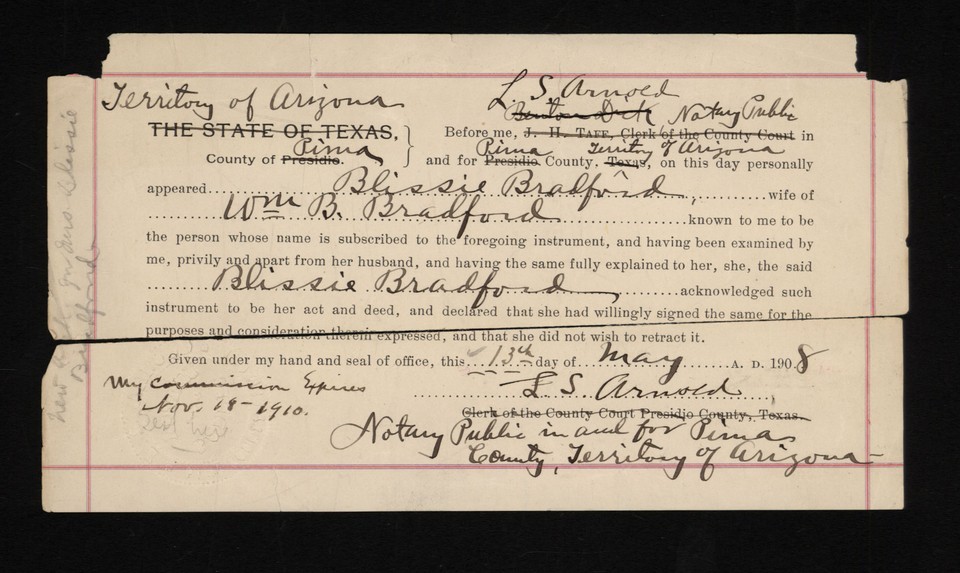 L. S. Arnold
Territory of Arizona
Benton Dick, Notary Public
THE STATE OF TEXAS,
Before me, J. H. TAFF, Clerk of the County Court in
Pima
Pima Territory of Arizona
County of Presidio.
and for Presidio County, Texas, on this day personally
appeared Blissie Bradford, wife of
Wm B. Bradford known to me to be
the person whose name is subscribed to the foregoing instrument, and having been examined by
me, privily and apart from her husband, and having the same fully explained to her, she, the said
Blissie Bradford, acknowledged such
instrument to be her act and deed, and declared that she had willingly signed the same for the
purposes and consideration therein expressed, and that she did not wish to retract it.
Given under my hand and seal of office, this 13th day of May A. D. 1908
My Commission Expires
Nov. 18-1910.
L S. Arnold
Clerk of the County Court Presidio County, Texas.
Notary Public in and for Pima
County, Territory of Arizona
Mrs. Blissie
Bradford